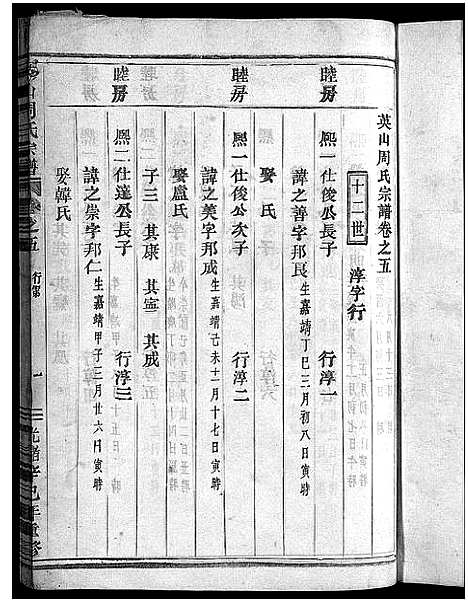 英山周氏宗譜卷之五
十二世 淳字行
睦房 熙一仕俊公長子 行淳一
諱之善字邦良 生嘉靖丁巳三月初八日寅時
娶 氏
睦房 熙一仕俊公次子 行淳二
諱之美字邦成 生嘉靖己未十一月十七日寅時
娶盧氏
子三 其康 其寧 其成
睦房 熙二仕達公長子 行淳三
諱之崇字邦仁 生嘉靖甲子三月廿六日寅時
娶韓氏
山周氏宗譜 卷之五 行 一 光緒辛巳年重修